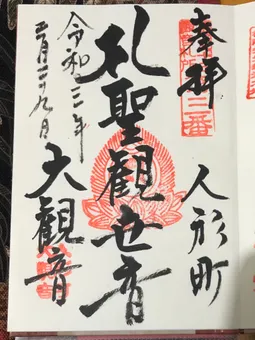 奉拝
三番
人形町
聖観世音
令和三年
月二十九日
大観音